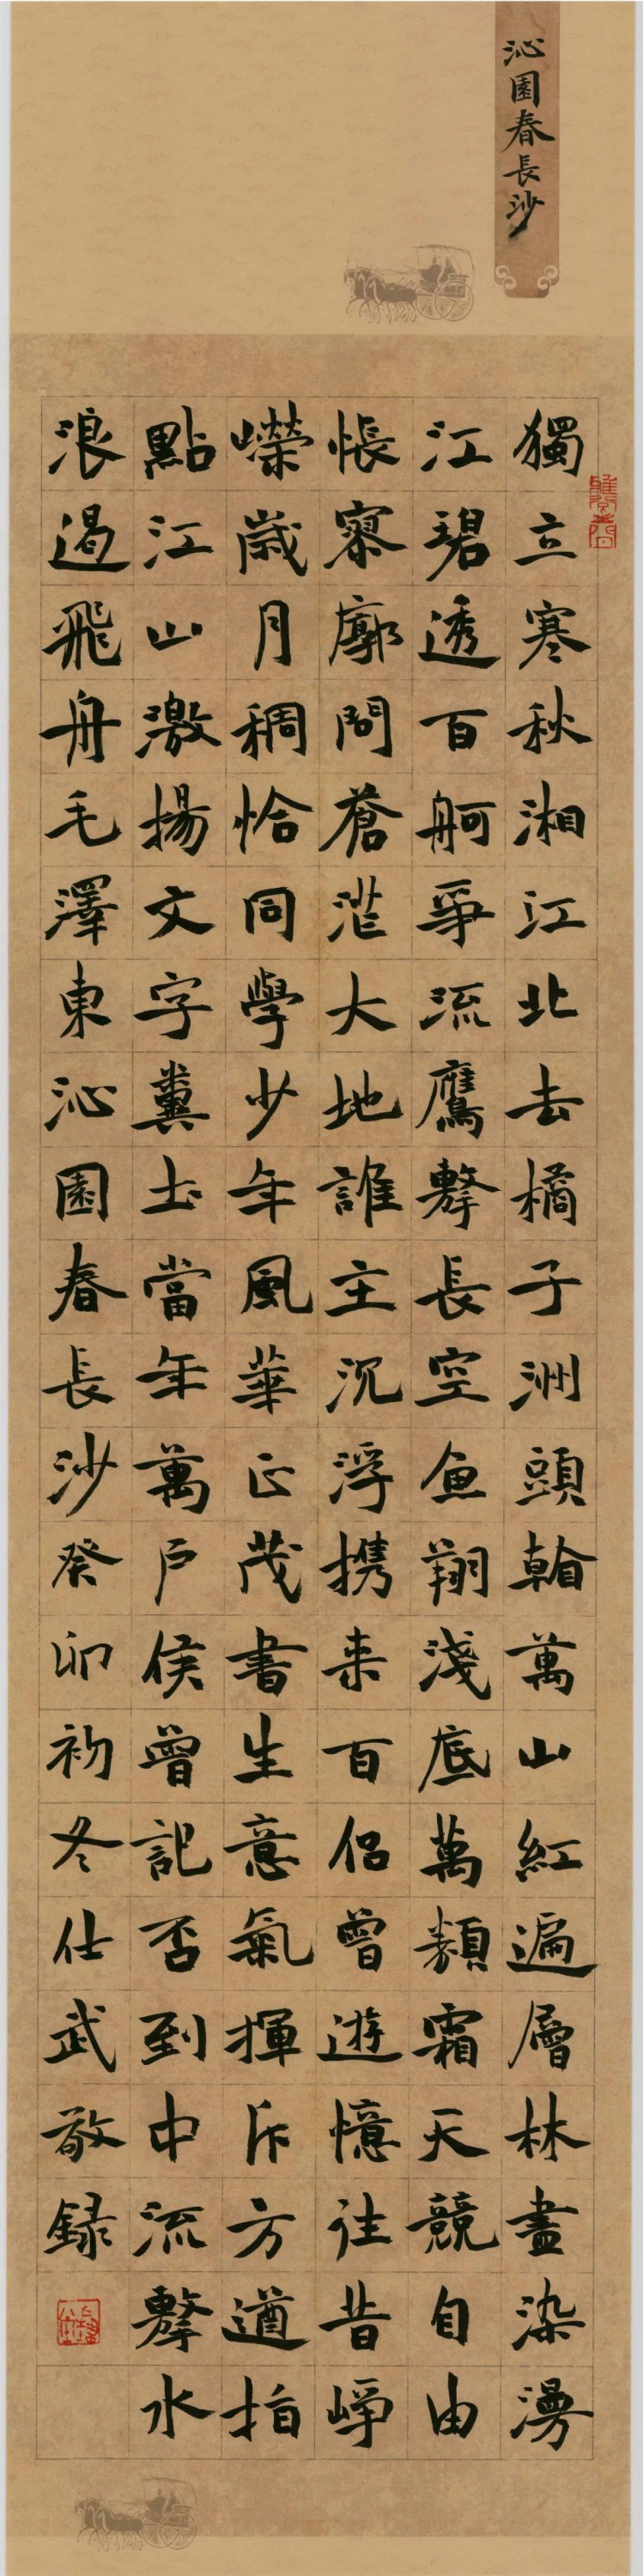 沁園春長沙
獨立寒秋湘江北去橘子洲頭看萬山紅遍層林盡染漫
江碧透百舸爭流鷹擊長空魚翔淺底萬類霜天競自由
悵寥廓問蒼茫大地誰主沉浮携来百侣曾遊憶往昔崢
嶸歲月稠恰同學少年風華正茂書生意氣揮斥方遒指
點江山激揚文字糞土當年萬户侯曾記否到中流擊水
浪遏飛舟毛澤東沁園春長沙癸卯初冬仕武敬録